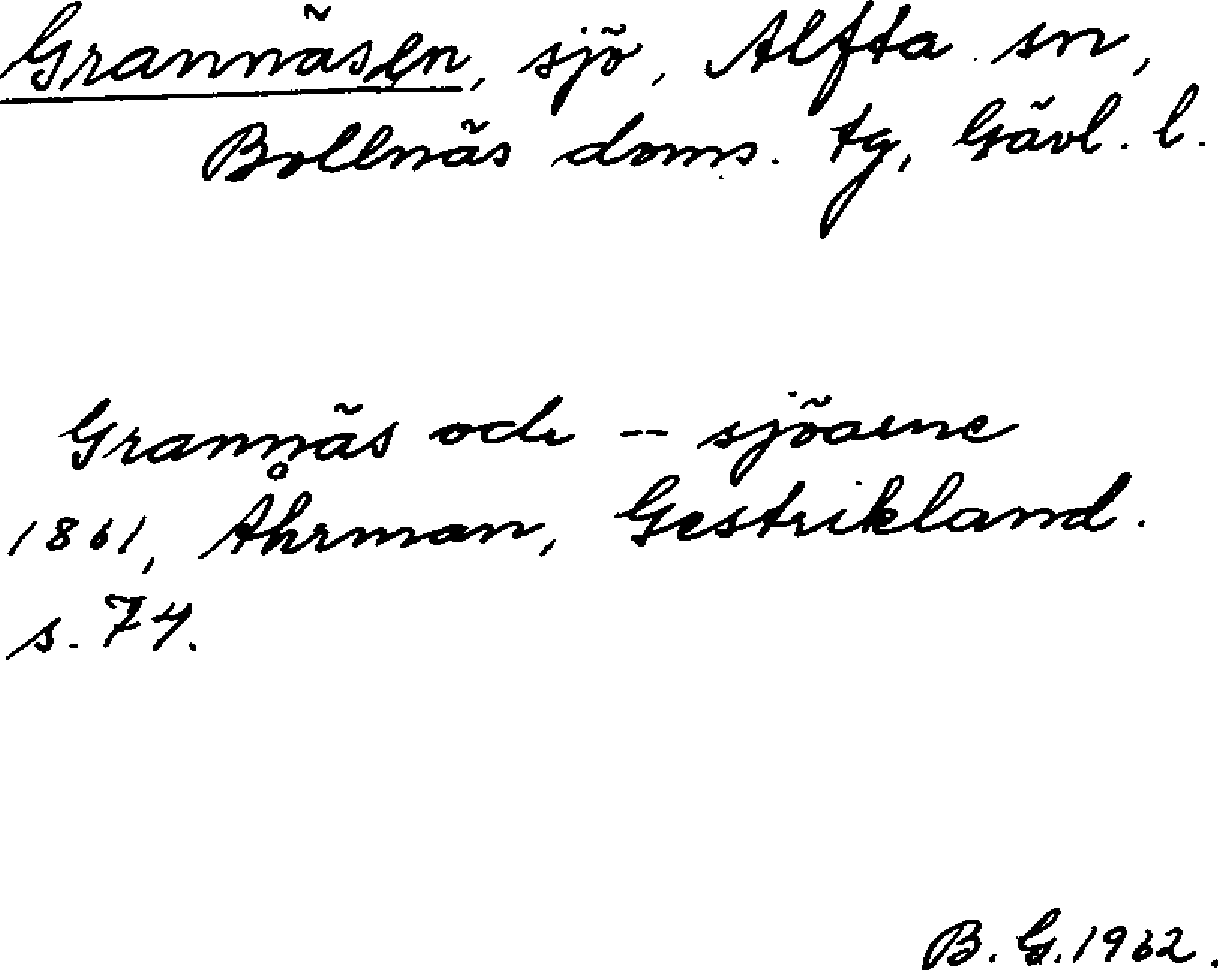 Grannäsen, sjö, Alfta sn,
Bollnäs doms. tg, Gävl. l.
Grannäs och -- sjöarne
1861, Åhrman, Gestrikland.
s. 74.
B. G. 1962.